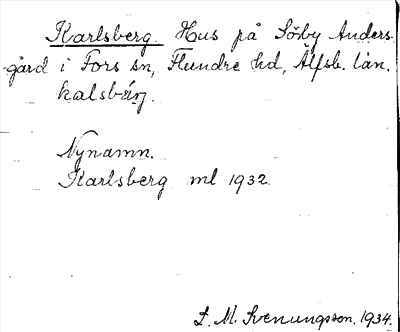 Karlsberg. Hus på Söby Anders-
gård i Fors sn, Flundre hd, Älfsb. län.
kalsbärj.
Nynamn.
Karlsberg ml 1932.
L. M. Svenungsson, 1934.